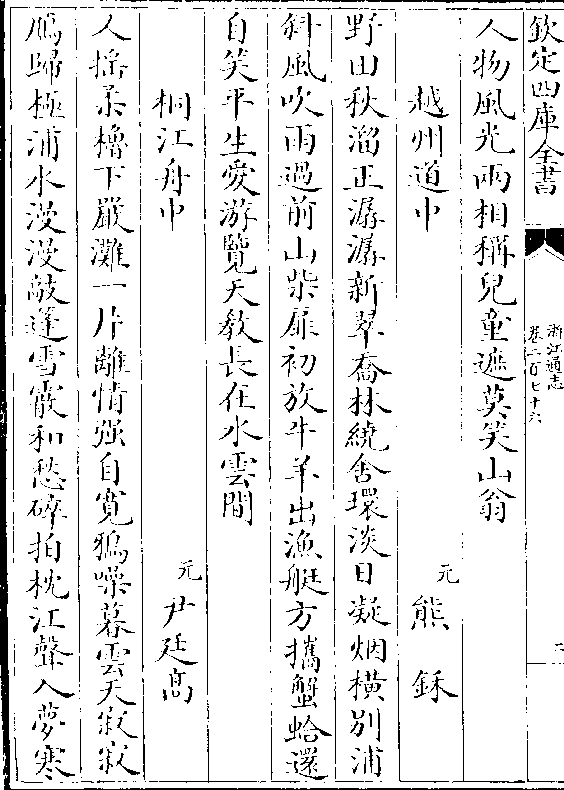 欽定四庫全書
浙江通志
卷二百七十六
二
人物風光兩相稱兒童遮莫笑山翁
越州道中
元
熊鉌
野田秋溜正潺潺新翠喬林繞舍環淡日凝烟橫别浦
斜風吹雨過前山柴扉初放牛羊出漁艇方攜蟹蛤還
自笑平生愛游覽天教長在水雲間
桐江舟中
元
尹廷高
人搖柔櫓下嚴灘一片離情强自寛鴉噪暮雲天寂寂
鴈歸極浦水漫漫敲蓬雪霰和愁碎拍枕江聲入夢寒